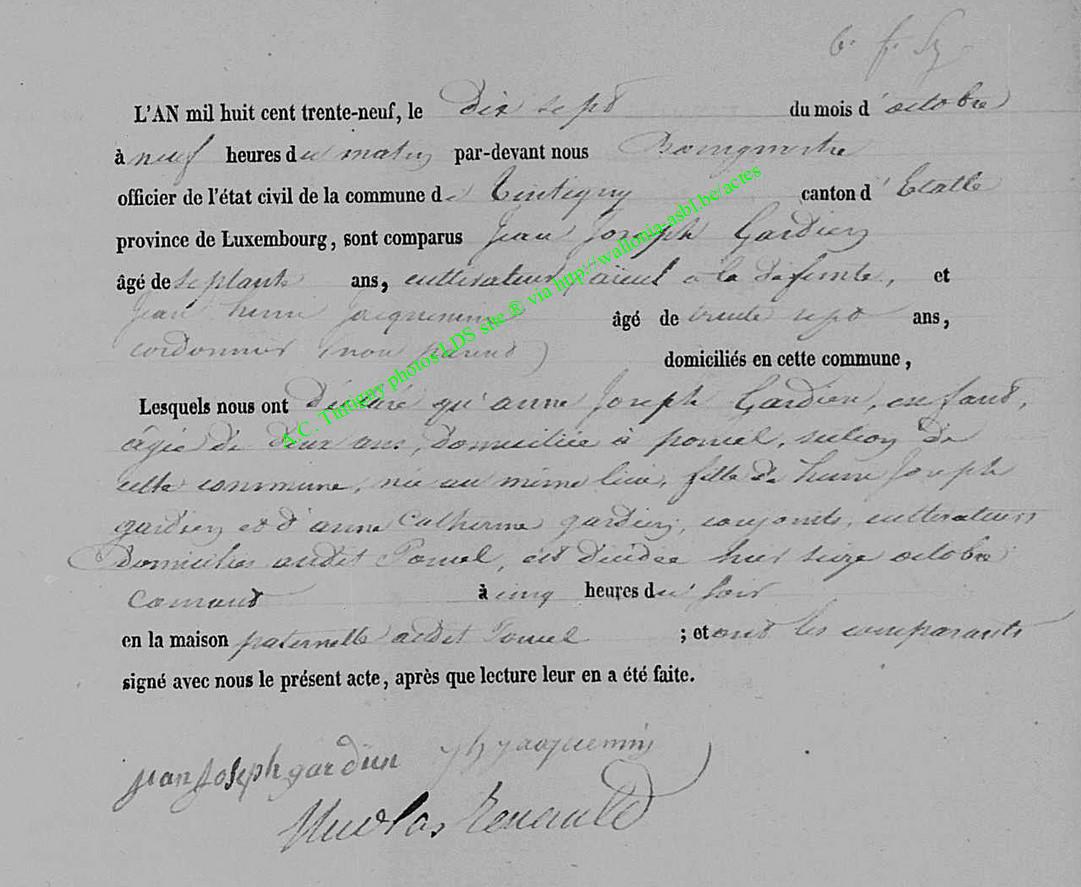 L'AN mil huit cent trente-neuf, le dix sept du mois d'octobre
à neuf heures du matin par-devant nous Bourgmestre
officier de l'état civil de la commune de Tintigny canton d'Etalle
province de Luxembourg, sont comparus Jean Joseph Gardien
âgé de septante ans, cultivateur, aïeul à la défunte, et
Jean henri Jacquemin âgé de trente sept ans,
cordonnier (non parent) domiciliés en cette commune,
Lesquels nous ont déclaré qu'anne Joseph Gardien, enfant,
âgée de deux ans, domiciliée à poncel, section de
cette commune, née au même lieu, fille de henri Joseph
gardien et d'anne Catherine gardien, conjoints, cultivateurs
Domiciliés audit Poncel, est décédée hier seize octobre
courant à cinq heures du soir
en la maison paternelle audit Poncel ; et ont les comparants
signé avec nous le présent acte, après que lecture leur en a été faite.
jean joseph gardien jh jacquemin
Nicolas Renauld
A.C. Tintigny photos LDS site ® via http://wallonia-asbl.be/actes